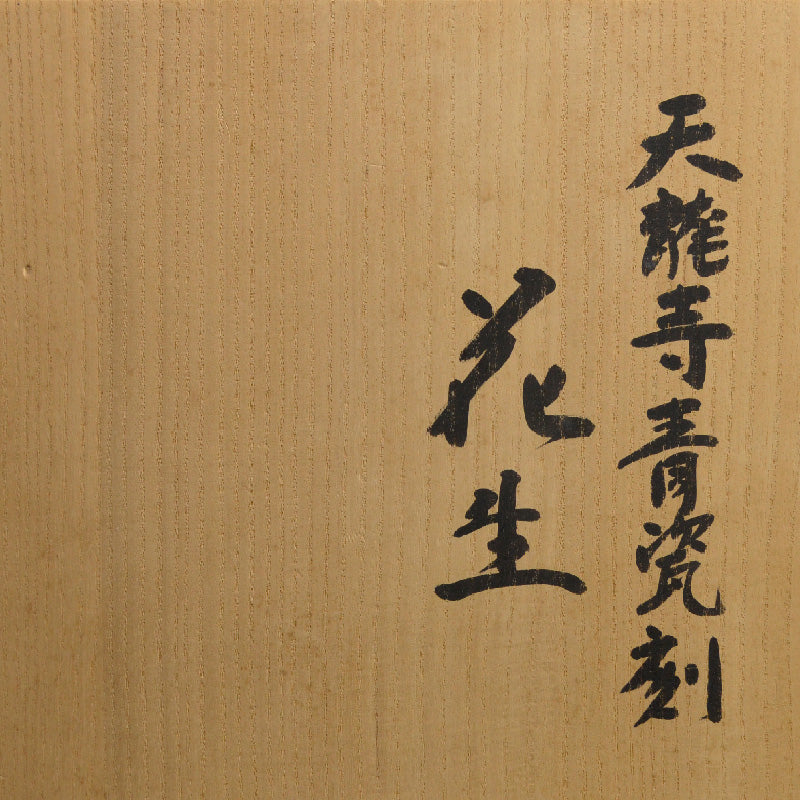 天龍寺青瓷刻
花生